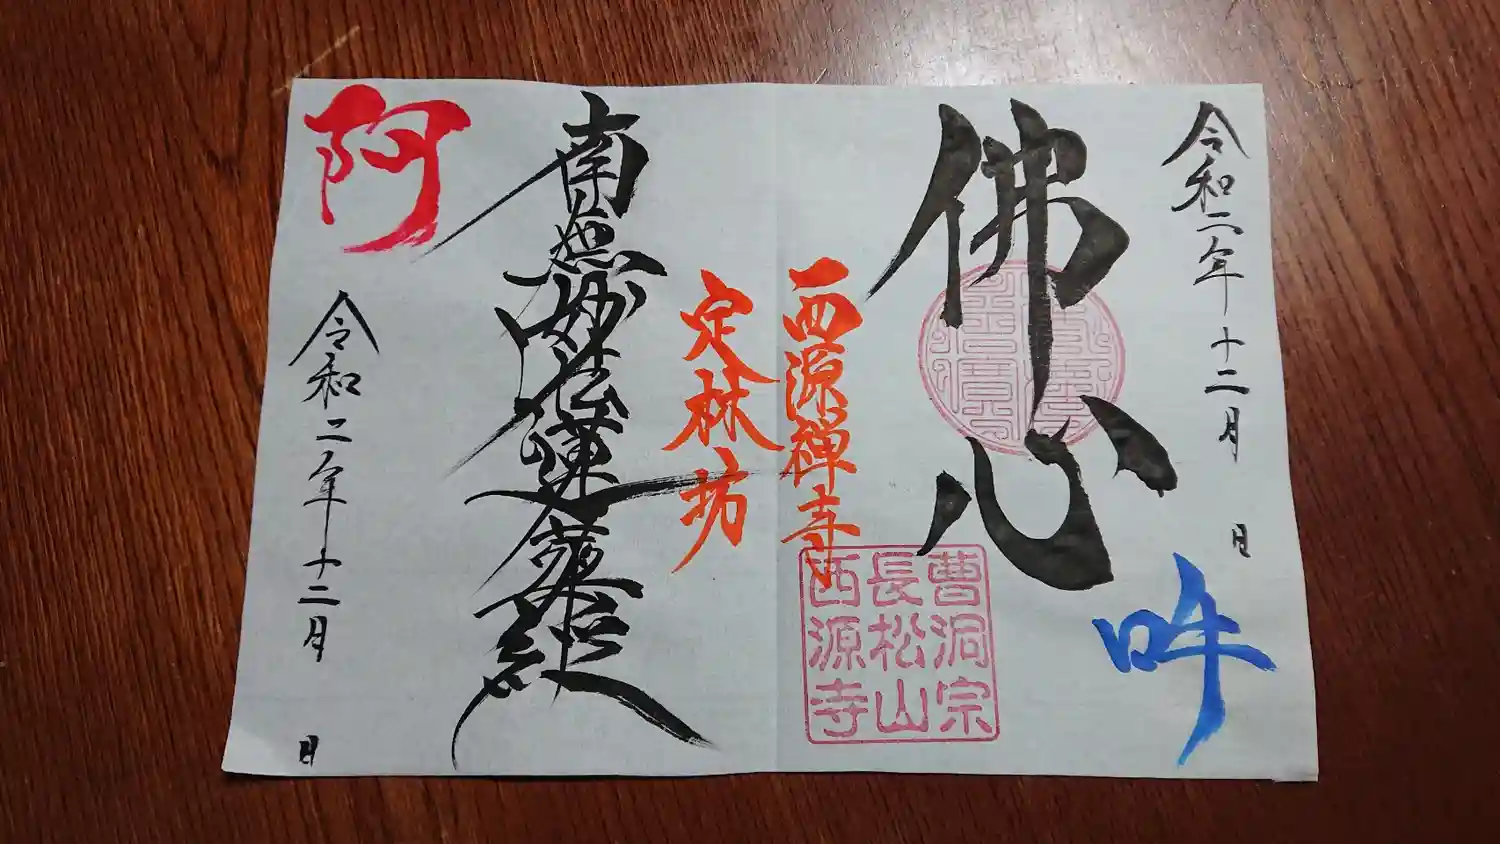 令和二年十二月 日
吽
佛心
西源禅寺
曹洞宗
長松山
西源寺
定林坊
南無妙法蓮華経
阿
令和二年十二月 日